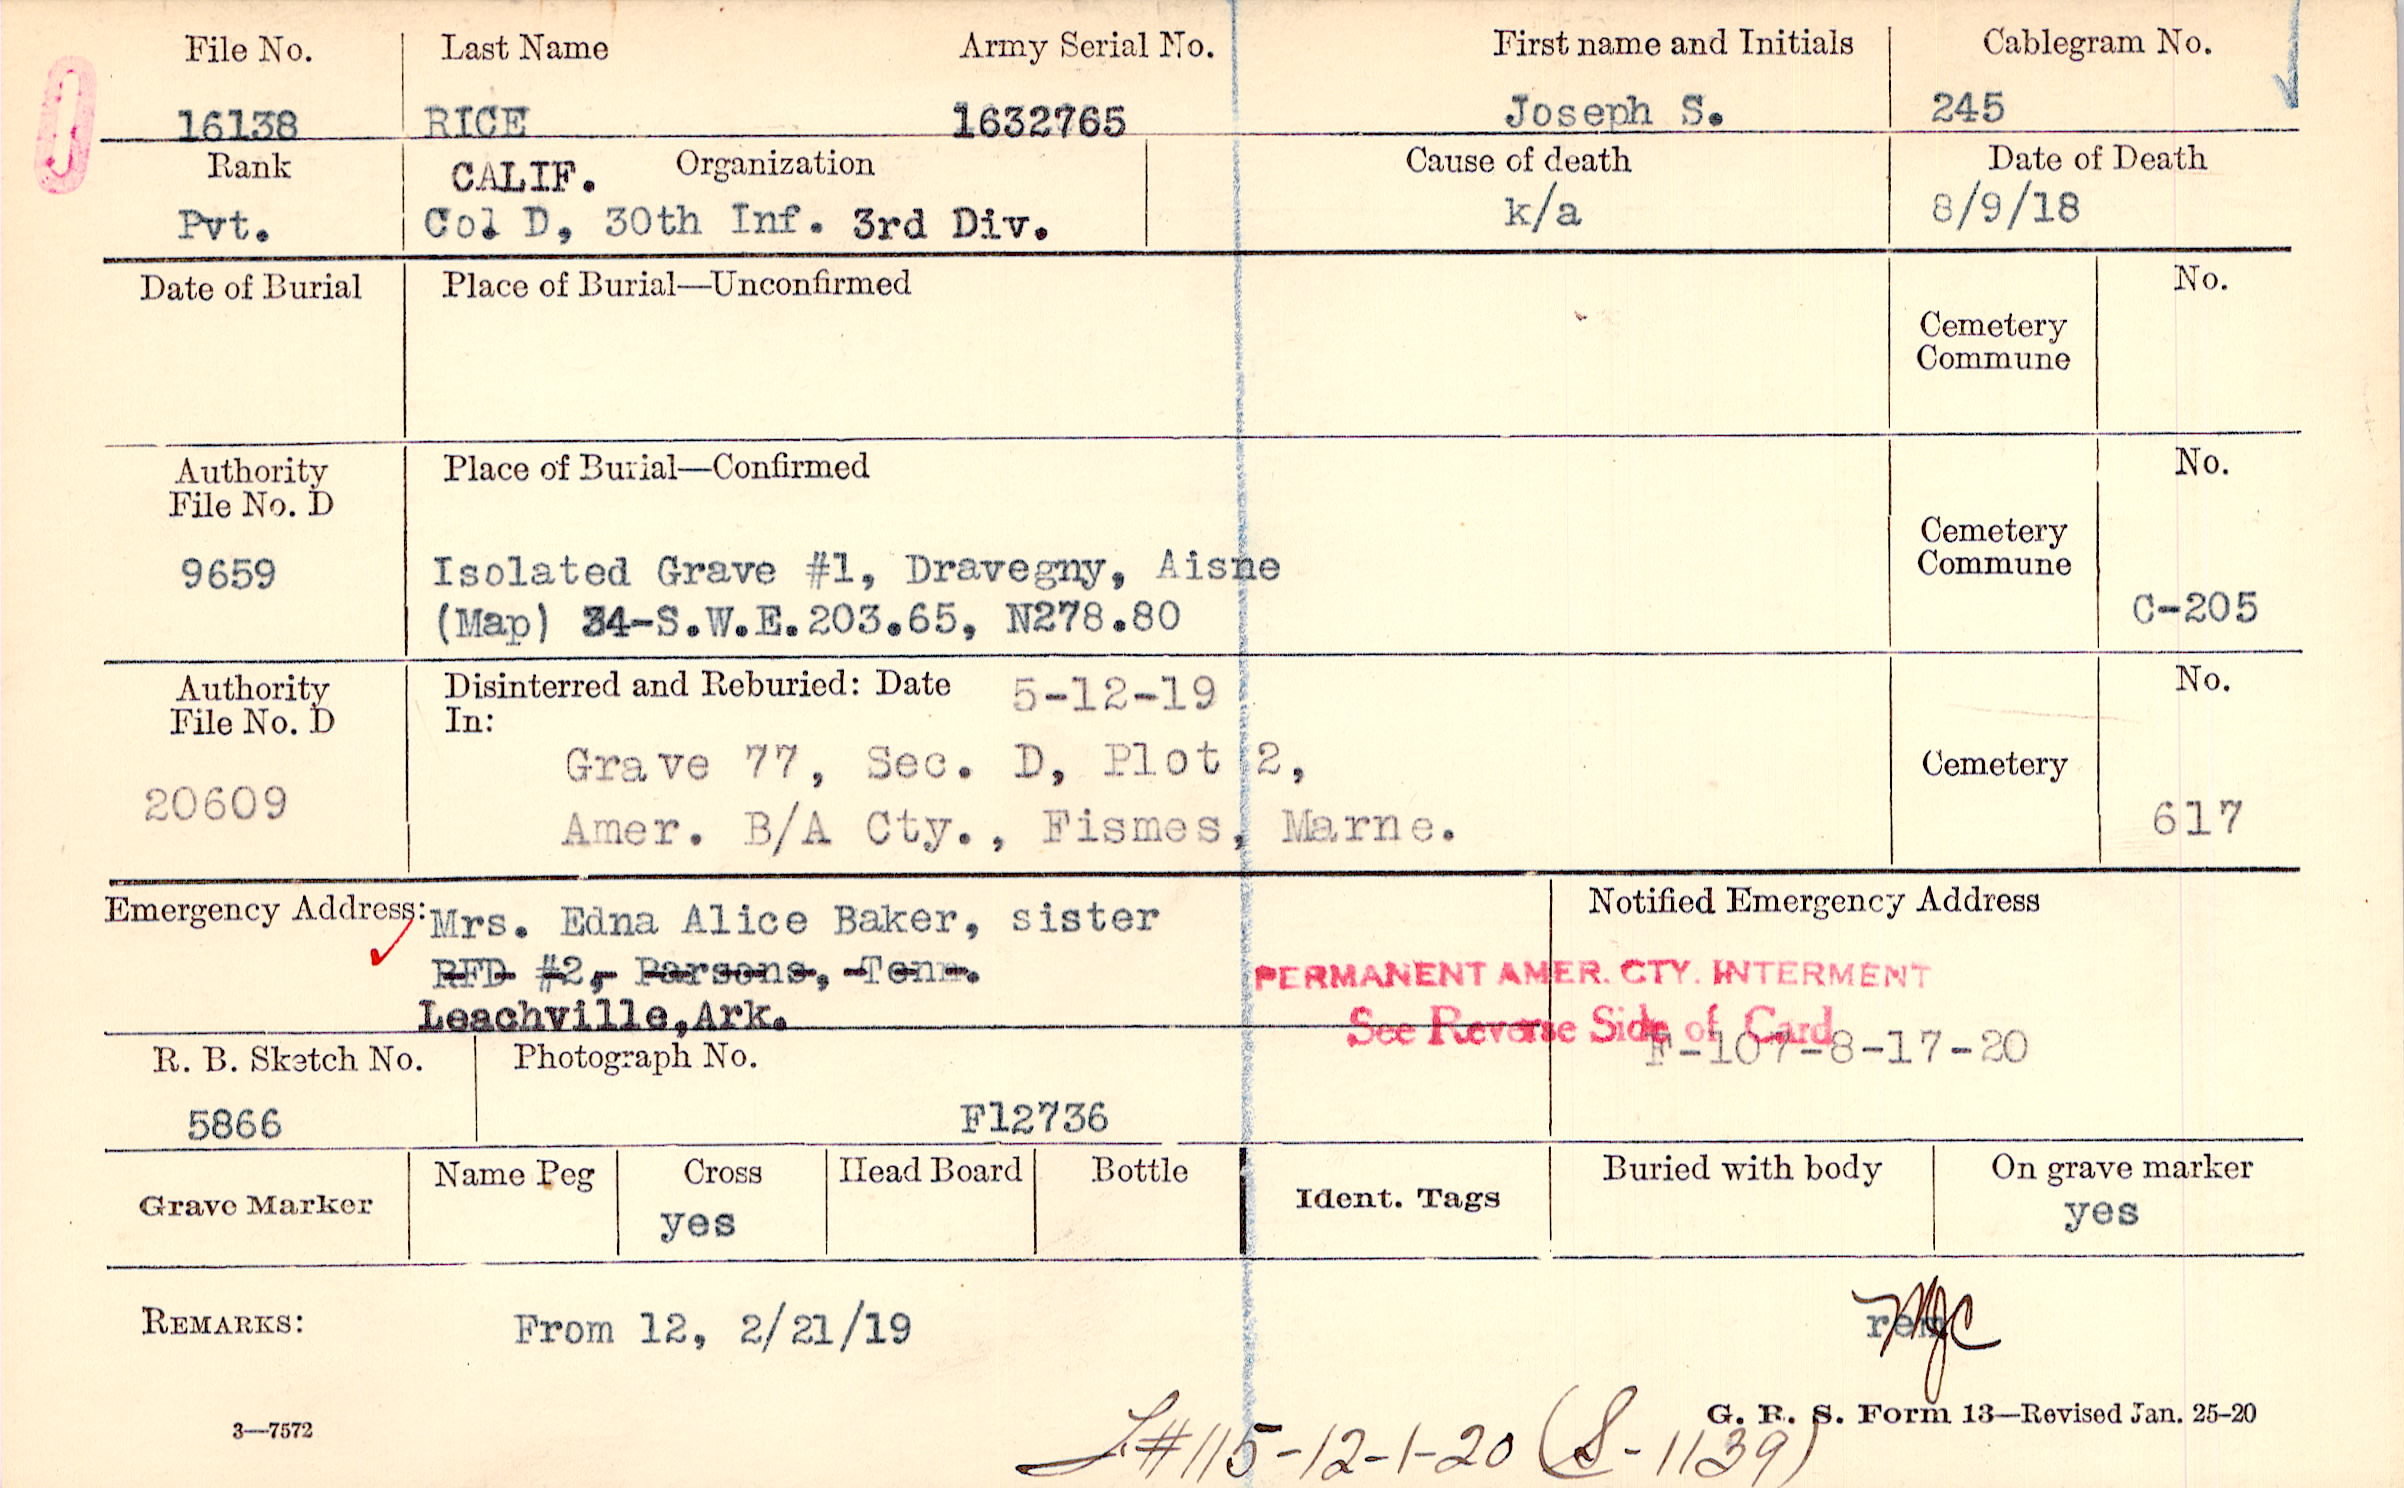 File No. Last Name Army Serial No. First name and Initials Cablegram No.
16138 RICE 1632765 Joseph S. 245
Rank CALIF. Organization Cause of death Date of Death
Pvt. Col D, 30th Inf. 3rd Div. k/a 8/9/18
Date of Burial Place of Burial—Unconfirmed No.
Cemetery
Commune
Authority Place of Burial—Confirmed No.
File No. D
Cemetery
Commune
9659 Isolated Grave #1, Dravegny, Aisne
(Map) 34-S.W.E.203.65, N278.80 C-205
Authority Disinterred and Reburied: Date 5-12-19 No.
File No. D In:
Grave 77, Sec. D, Plot 2, Cemetery
20609 Amer. B/A Cty., Fismes, Marne. 617
Emergency Address: Mrs. Edna Alice Baker, sister Notified Emergency Address
RFD #2, Parsons, Tenn.
PERMANENT AMER. CTY. INTERMENT
Leachville,Ark. See Reverse Side of Card
F-107-8-17-20
R. B. Sketch No. Photograph No.
5866 F12736
Grave Marker Name Peg Cross Head Board Bottle Ident. Tags Buried with body On grave marker
yes yes
REMARKS: From 12, 2/21/19 rem
MJC
3—7572 G. R. S. Form 13—Revised Jan. 25-20
L#115-12-1-20 (S-1139)